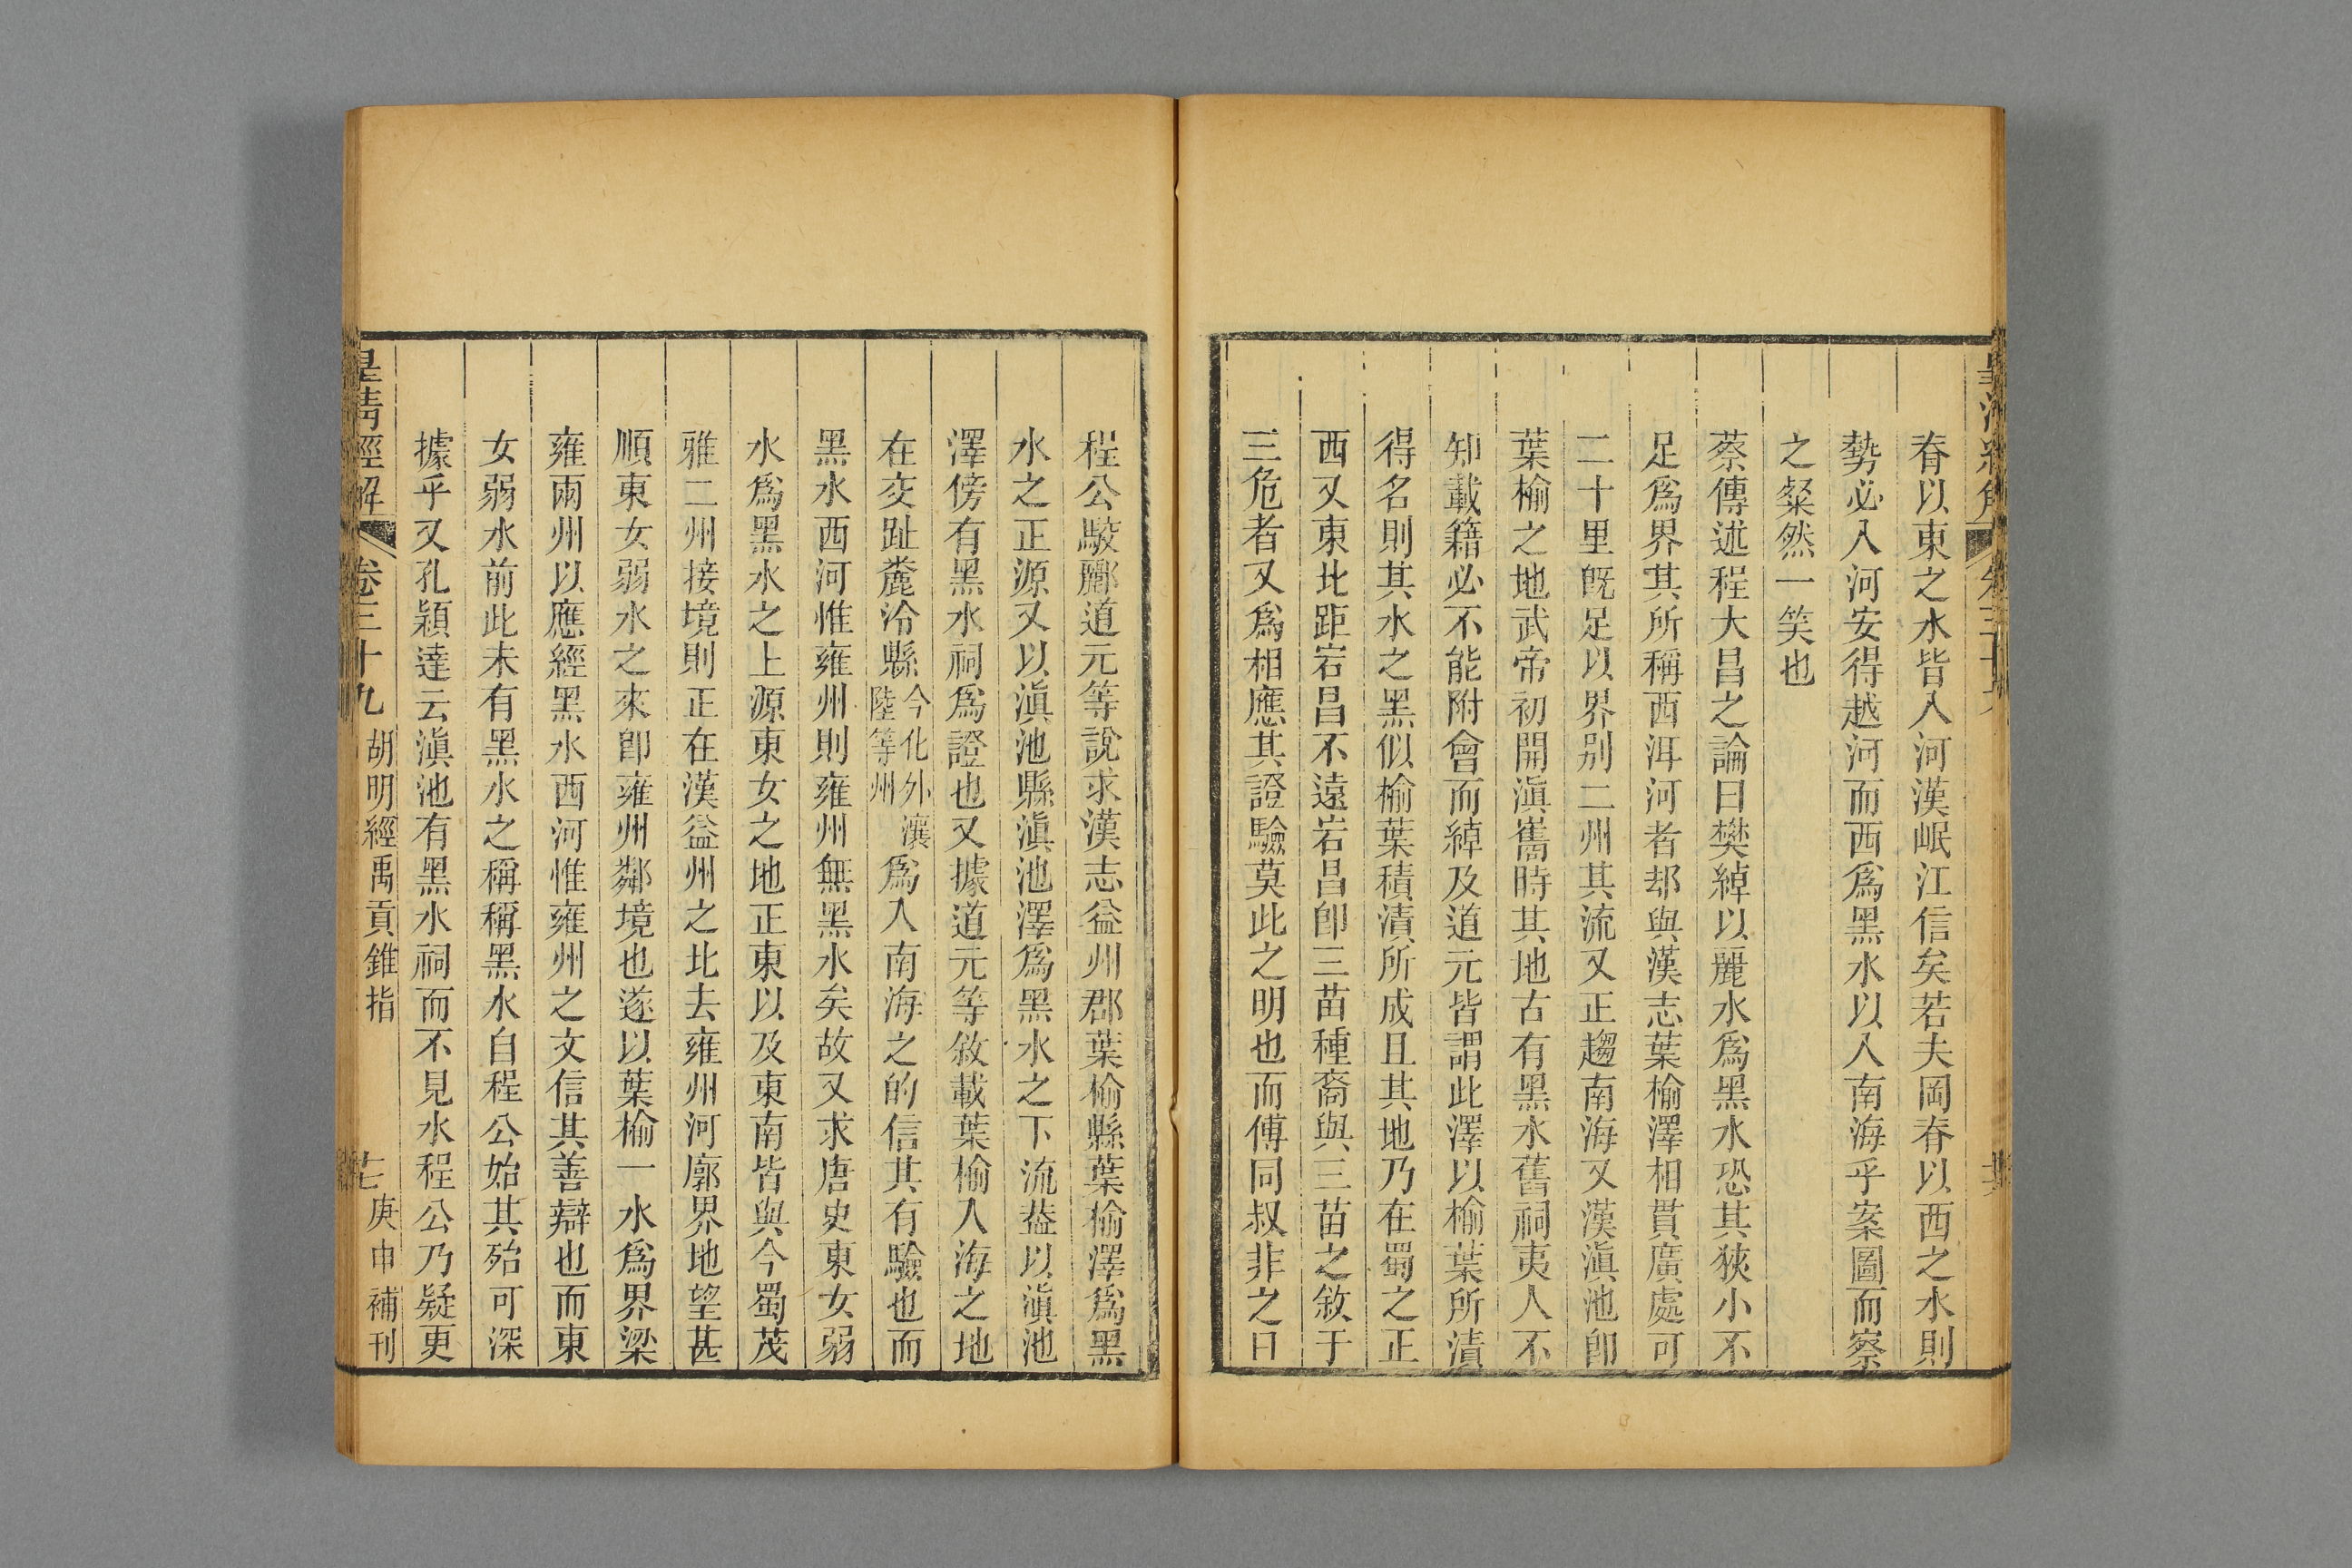 脊以東之水皆入河漢岷江信矣若夫岡脊以西之水則
勢必入河安得越河而西爲黑水以入南海乎案圖而察
之粲然一笑也
蔡傳述程大昌之論曰樊綽以麗水爲黑水恐其狹小不
足爲界其所稱西洱河者却與漢志葉榆澤相貫廣處可
二十里旣足以界别二州其流又正趨南海又漢滇池卽
葉榆之地武帝初開滇嶲時其地古有黑水舊祠夷人不
知載籍必不能附會而綽及道元皆謂此澤以榆葉所漬
得名則其水之黑似榆葉積漬所成且其地乃在蜀之正
西又東北距宕昌不遠宕昌卽三苗種裔與三苗之敘于
三危者又爲相應其證驗莫此之明也而傅同叔非之曰
程公駮酈道元等說求漢志益州郡葉榆縣葉榆澤爲黑
水之正源又以滇池縣滇池澤爲黑水之下流葢以滇池
澤傍有黑水祠爲證也又據道元等敘載葉榆入海之地
在交趾麊泠縣今化外瀼陸等州爲入南海之的信其有驗也而
黑水西河惟雍州則雍州無黑水矣故又求唐史東女弱
水爲黑水之上源東女之地正東以及東南皆與今蜀茂
雅二州接境則正在漢益州之北去雍州河廓界地望甚
順東女弱水之來卽雍州鄰境也遂以葉榆一水爲界梁
雍兩州以應經黑水西河惟雍州之文信其善辯也而東
女弱水前此未有黑水之稱稱黑水自程公始其殆可深
據乎又孔穎達云滇池有黑水祠而不見水程公乃疑更
皇清經解 卷三十九 胡明經禹貢錐指 七 庚申補刊